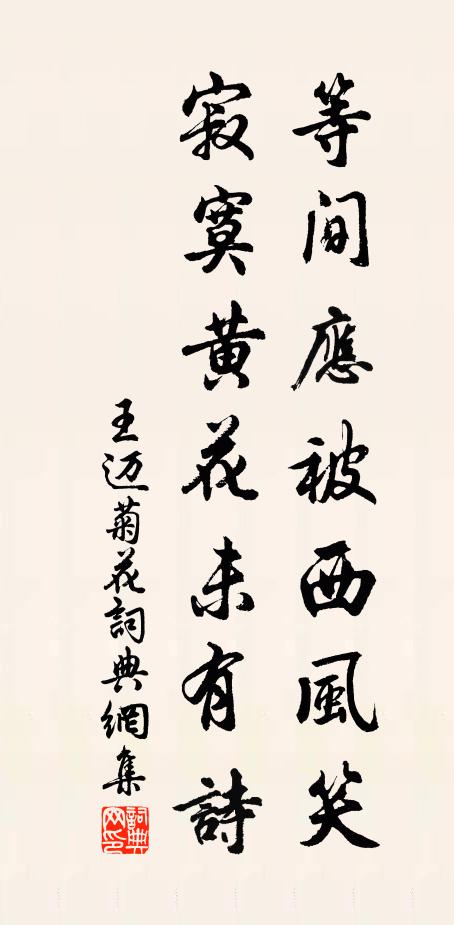 等間應被西風笑
寂寞黄花未有詩
王迈菊花詞典網集
詞典網印